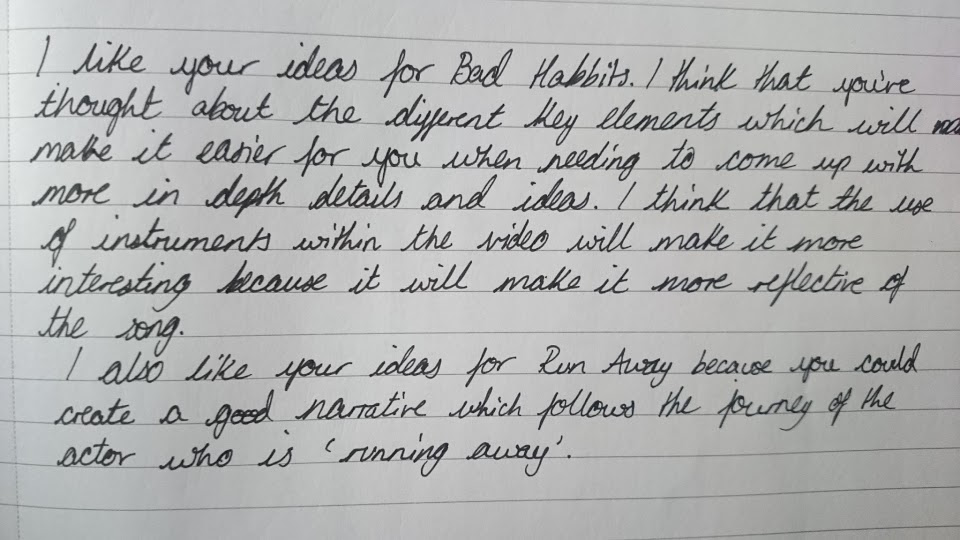 I like your ideas for Bad Habbits. I think that you've
thought about the different key elements which will
make it easier for you when needing to come up with
more in depth details and ideas. I think that the use
of instruments within the video will make it more
interesting because it will make it more reflective of
the song.
I also like your ideas for Run Away because you could
create a good narrative which follows the journey of the
actor who is 'running away'.